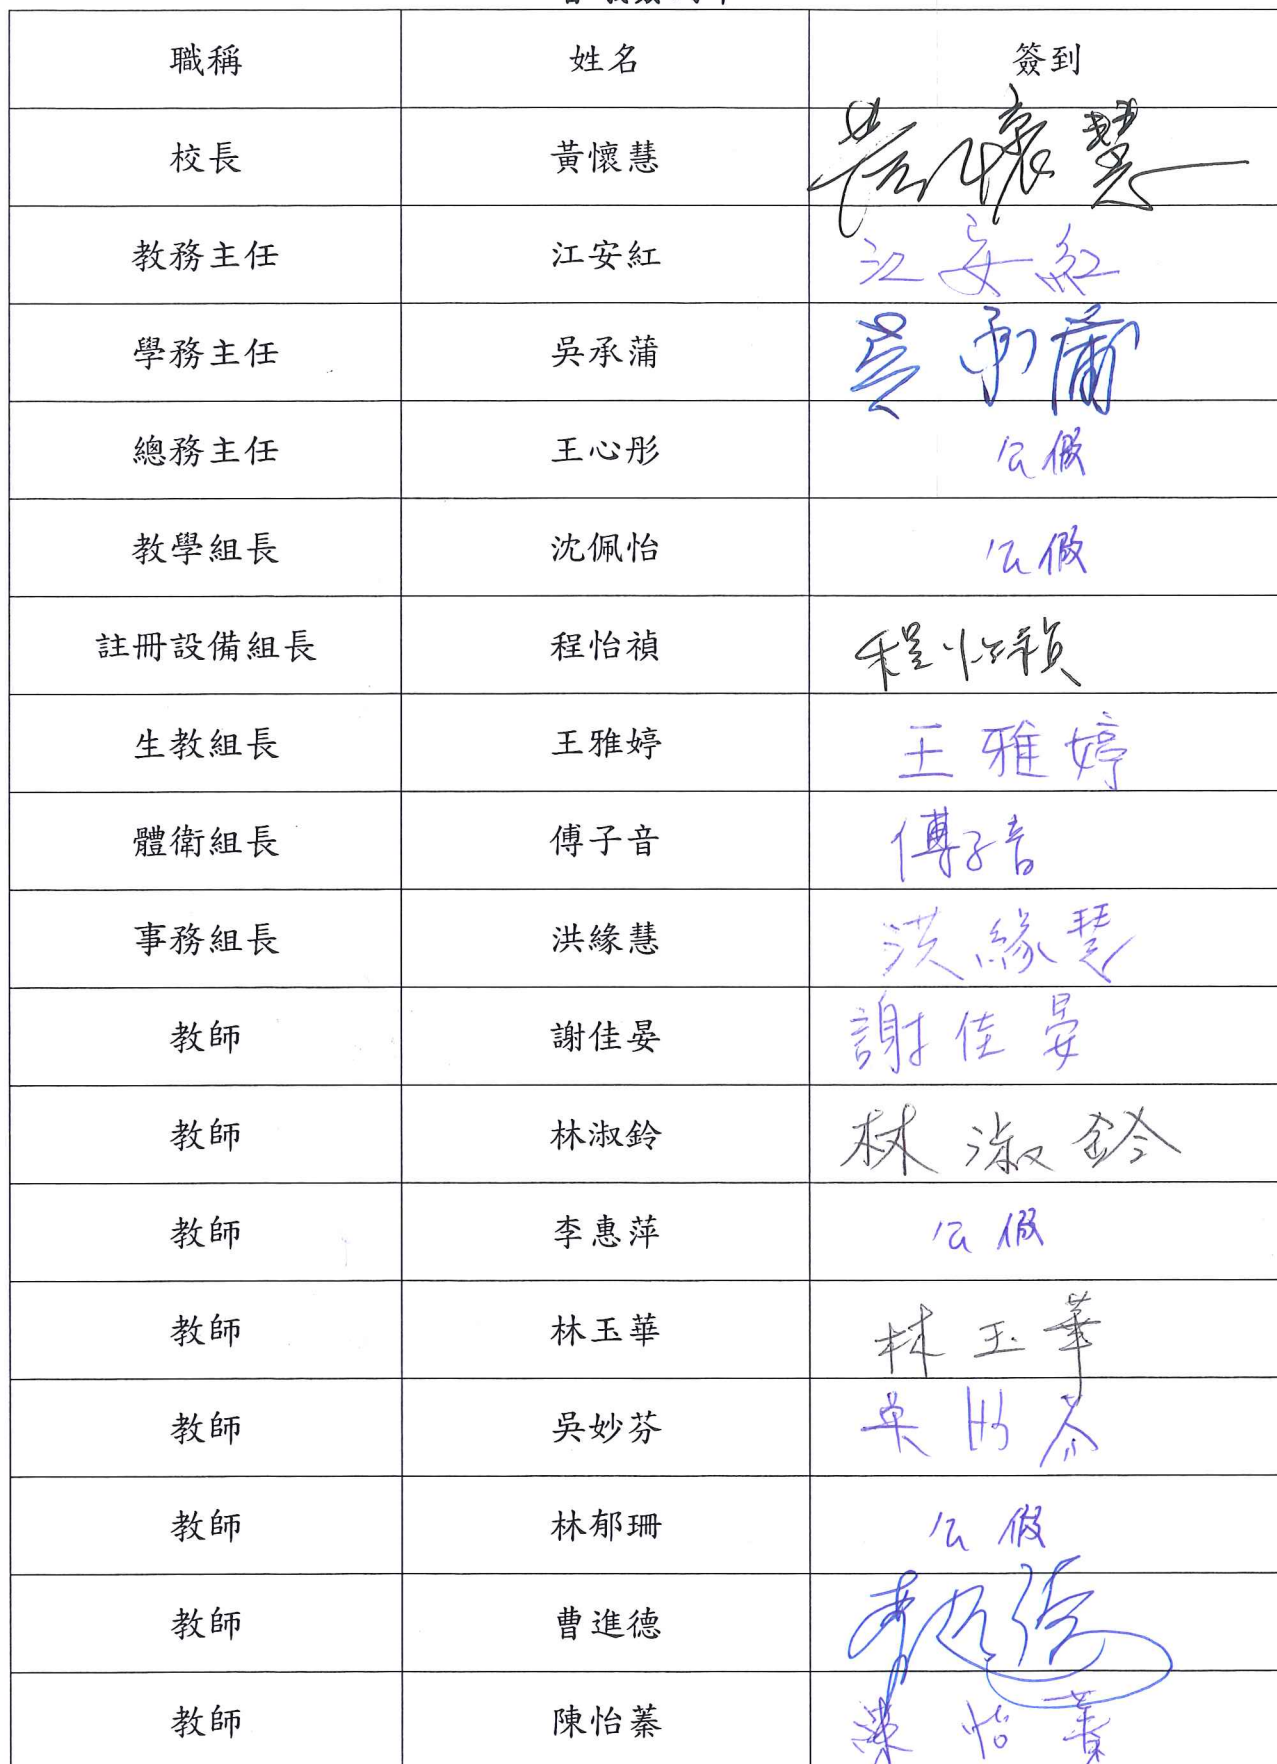 職稱 姓名 簽到
校長 黃懷慧 黃懷慧
教務主任 江安紅 江安紅
學務主任 吳承蒲 吳承蒲
總務主任 王心彤 公假
教學組長 沈佩怡 公假
註冊設備組長 程怡禎 程怡禎
生教組長 王雅婷 王雅婷
體衛組長 傅子音 傅子音
事務組長 洪緣慧 洪緣慧
教師 謝佳晏 謝佳晏
教師 林淑鈴 林淑鈴
教師 李惠萍 公假
教師 林玉華 林玉華
教師 吳妙芬 吳妙芬
教師 林郁珊 公假
教師 曹進德 曹進德
教師 陳怡蓁 陳怡蓁